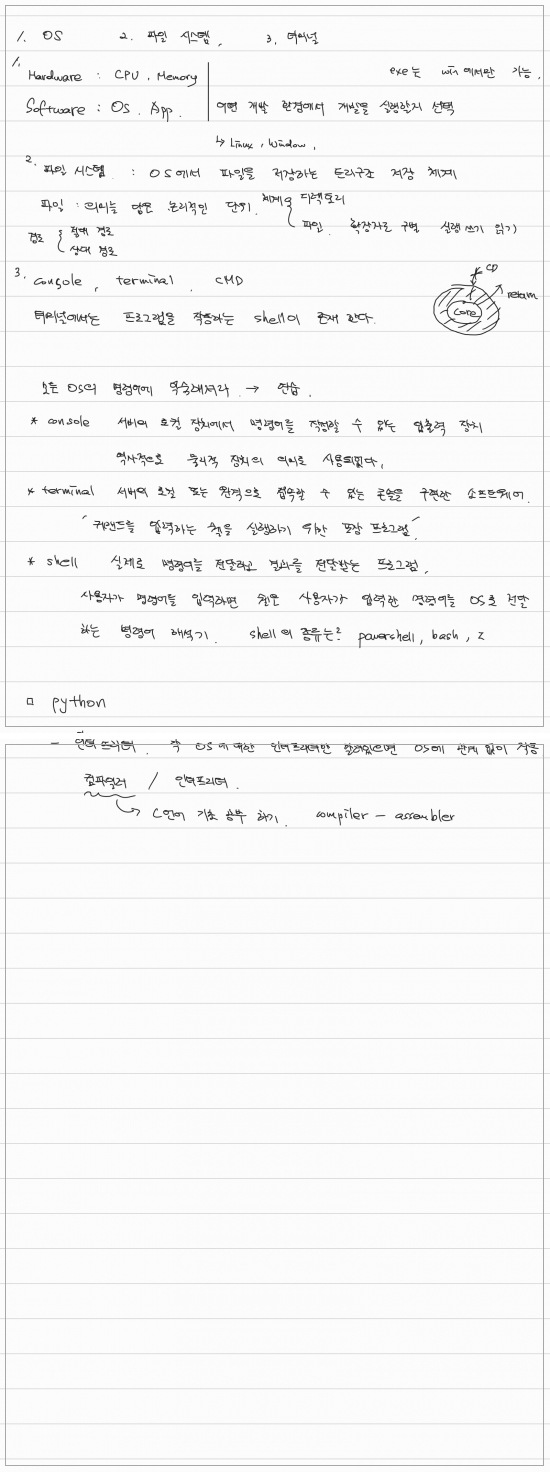 1. OS 2. 파일 시스템. 3. 터미널
1.
Hardware : CPU, Memory
exe는 win에서만 가능.
Software : OS, App. 어떤 개발 환경에서 개발을 실행할지 선택
↳ Linux, Window,
2. 파일 시스템 : OS에서 파일을 저장하는 트리구조 저장 체계
파일 : 의미를 담은 논리적인 단위. 체계 { 디렉토리
파일. 확장자로 구별 실행 쓰기 읽기)
경로 { 절대 경로
상대 경로
3. console, terminal. CMD
CD
return
core
터미널에서는 프로그램을 작동하는 shell이 존재 한다.
모든 OS의 명령어에 익숙해져라. → 연습.
* console 서버의 로컬 장치에서 명령어를 작성할 수 있는 입출력 장치
역사적으로 물리적 장치의 의미로 사용되었다.
* terminal 서버의 로컬 또는 원격으로 접속할 수 있는 콘솔을 구현한 소프트웨어.
"커맨드를 입력하는 쉘을 실행하기 위한 포장 프로그램"
* shell 실제로 명령어를 전달하고 결과를 전달받는 프로그램.
사용자가 명령어를 입력하면 쉘은 사용자가 입력한 명령어를 OS로 전달
하는 명령어 해석기. shell의 종류는? powershell, bash, z
□ python
- 인터프리터. 각 OS에 대한 인터프리터만 깔려있으면 OS에 관계 없이 작동
컴파일러 / 인터프리터.
↳ C언어 기초 공부 하기. compiler - assembler